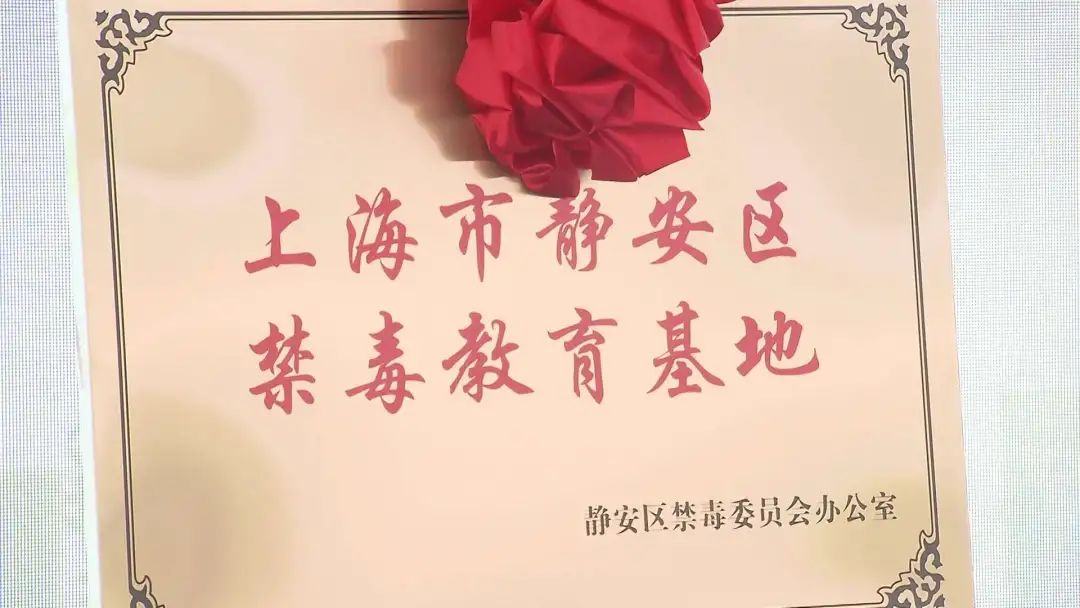 上海市静安区
禁毒教育基地
静安区禁毒委员会办公室